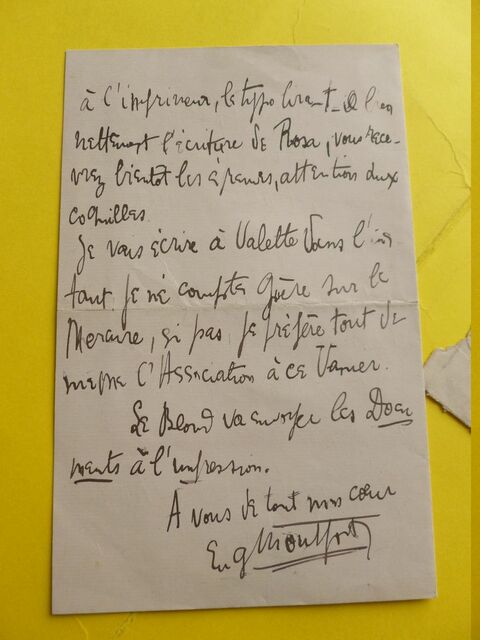 à l'imprimeur, le typo lirait-il
nettement l'écriture de Rosa, vous rece-
vrez bientôt les épreuves, attention aux
coquilles
Je vais écrire à Valette dans l'ins
tant. Je ne compte guère sur le
Mercure, si pas, je préfère tout de
meme l'Association à ce Vanier.
Le Blond va envoyer les Docu
ments à l'impression.
A vous de tout mon cœur
Eug Montfort